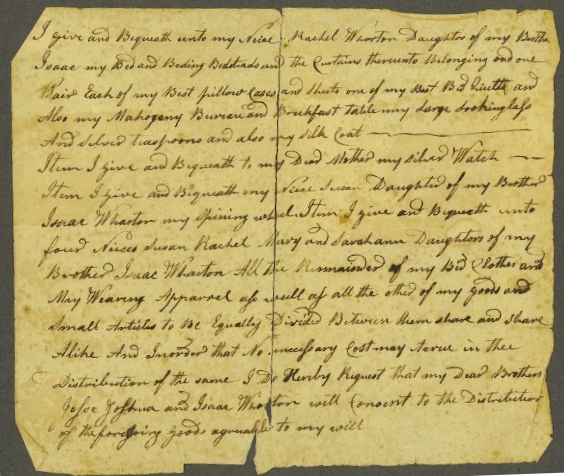 I give and Bequeath unto my Neice Rachel Whorton Daughter of my Brother
Isaac my Bed and Beding Bedsteads and the Curtains thereunto Belonging and one
Pair Each of my Best pillow Cases and Sheets one of my Best Bed Quilts and
Also my Mahogeny Bureau and Breckfast table my Large Lookinglass
And Silver teaspoons and also my Silk Coat
Item I give and Bequeath to my Dead Mother my Silver Watch
Item I give and Bequeath my Neice Susan Daughter of my Brother
Isaac Wharton my Spining wheel Item I give and Bequeath unto
four Neices Susan Rachel Mary and Sarahann Daughters of my
Brother Isaac Wharton All the Remainder of my Bed Clothes and
May Wearing Apparrel ass well ass all the other of my Goods and
Small Articles to Be Equelly Divided Between them share and Share
Alike And Inorder that No unecessary Cost may Acrue in thee
Distribution of the same I Do Hereby Request that my Dear Brothers
Joshua and Isaac Whorton will Concent to the Distribution
of the foregoing goods agreuable to my will